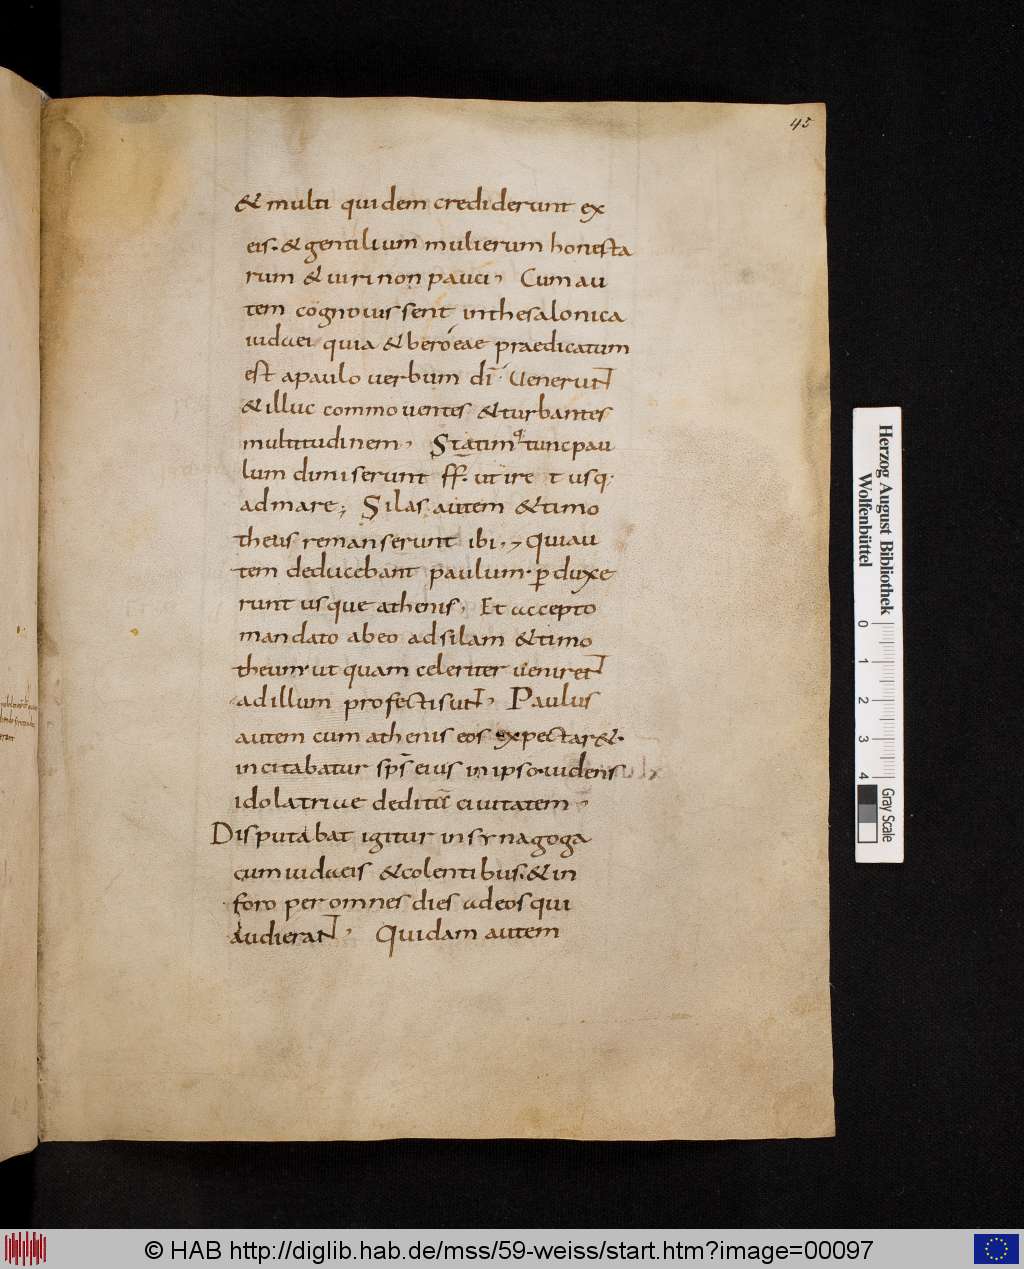 45
& multi quidem crediderunt ex
eis. & gentilium mulierum honesta
rum & uiri non pauci, Cum au
tem cognouissent inthesalonica
iudaei quia & beroeae praedicatum
est apaulo uerbum dī. Uenerunt
& illuc commouentes & turbantes
multitudinem, Statimq tunc pau
lum dimiserunt ff. ut ire t usq.
admare; Silas autem & timo
theus remanserunt ibi., Qui au
tem deducebant paulum. perduxe
runt usque athenis, Et accepto
mandato abeo adsilam & timo
theum. ut quam celeriter uenirent
adillum profecti sunt, Paulus
autem cum athenis eos expectar&.
incitabatur sps eius inipso. uidens
idolatriae deditū ciuitatem,
Disputabat igitur insynagoga
cum iudaeis & colentibus. & in
foro per omnes dies adeos qui
audierant, Quidam autem
Herzog August Bibliothek
Wolfenbüttel
0 1 2 3 4
Gray Scale
© HAB http://diglib.hab.de/mss/59-weiss/start.htm?image=00097